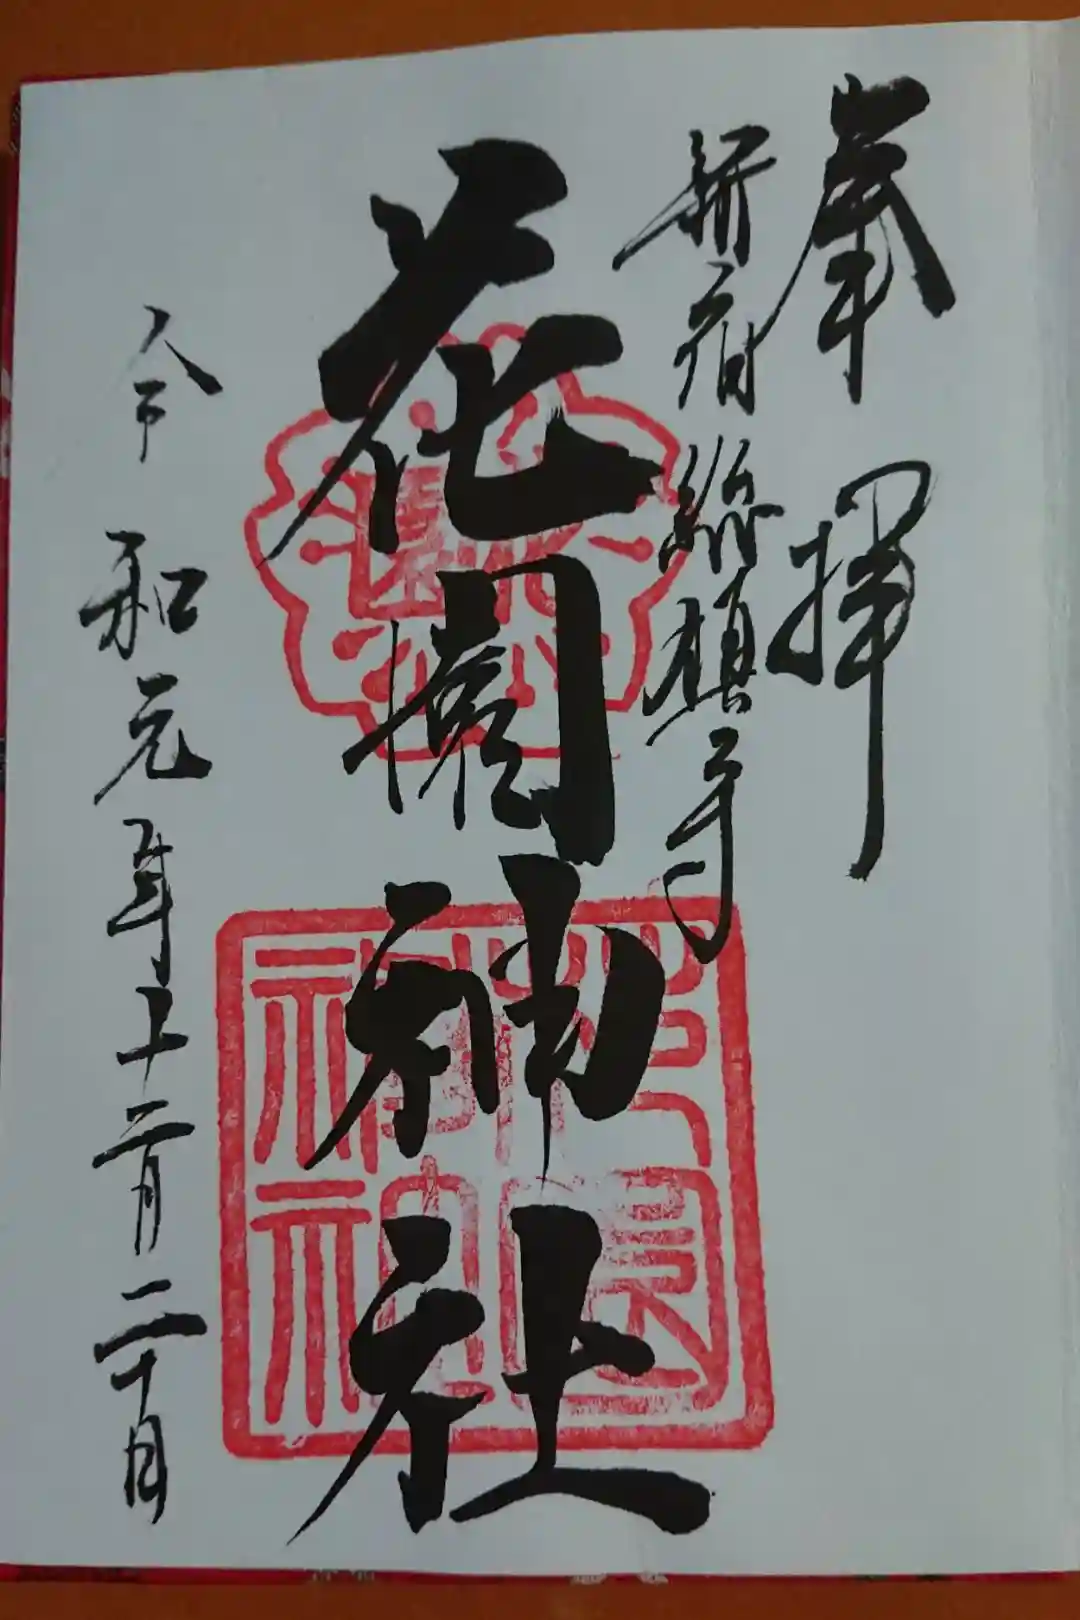 奉拝
新宿総鎮守
花園神社
令和元年十二月二十日